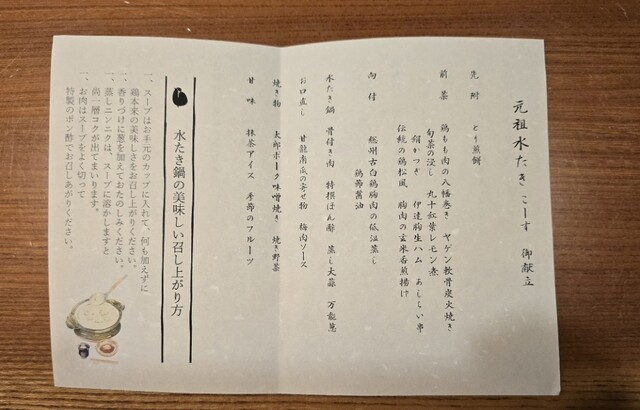 元祖水たきこーす 御献立
先附 とり煎餅
前菜 鶏もも肉の八幡巻き ヤゲン軟骨炭火焼き
旬菜の浸し 丸十紅葉レモン煮
絹かつぎ 伊達鶏生ハム あしらい串
伝統の鶏松風 胸肉の玄米香煎揚げ
向付 総州古白鶏胸肉の低温蒸し
鶏節醤油
水たき鍋 骨付き肉 特撰ぽん酢 蒸し大蒜 万能葱
お口直し 甘龍南瓜の寄せ物 梅肉ソース
焼き物 太郎ポーク味噌焼き 焼き野菜
甘味 抹茶アイス 季節のフルーツ
水たき鍋の美味しい召し上がり方
一、スープはお手元のカップに入れて、何も加えずに
鶏本来の美味しさをお召し上がりください。
一、香りづけに葱を加えておたのしみください。
一、蒸しニンニクは、スープに溶かしますと
尚一層コクが出てまいります。
一、お肉はスープをよく切って
特製のポン酢でお召しあがりください。